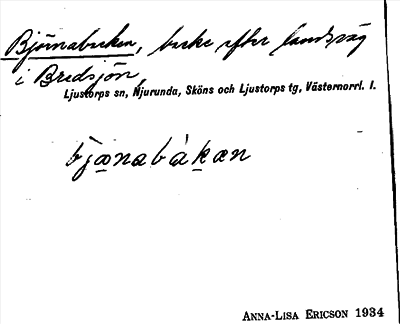 Björnabacken, backe efter landsväg
i Bredsjön,
Ljustorps sn, Njurunda, Sköns och Ljustorps tg, Västernorrl. l.
bjæ̲nabàk̲æn
ANNA-LISA ERICSON 1934